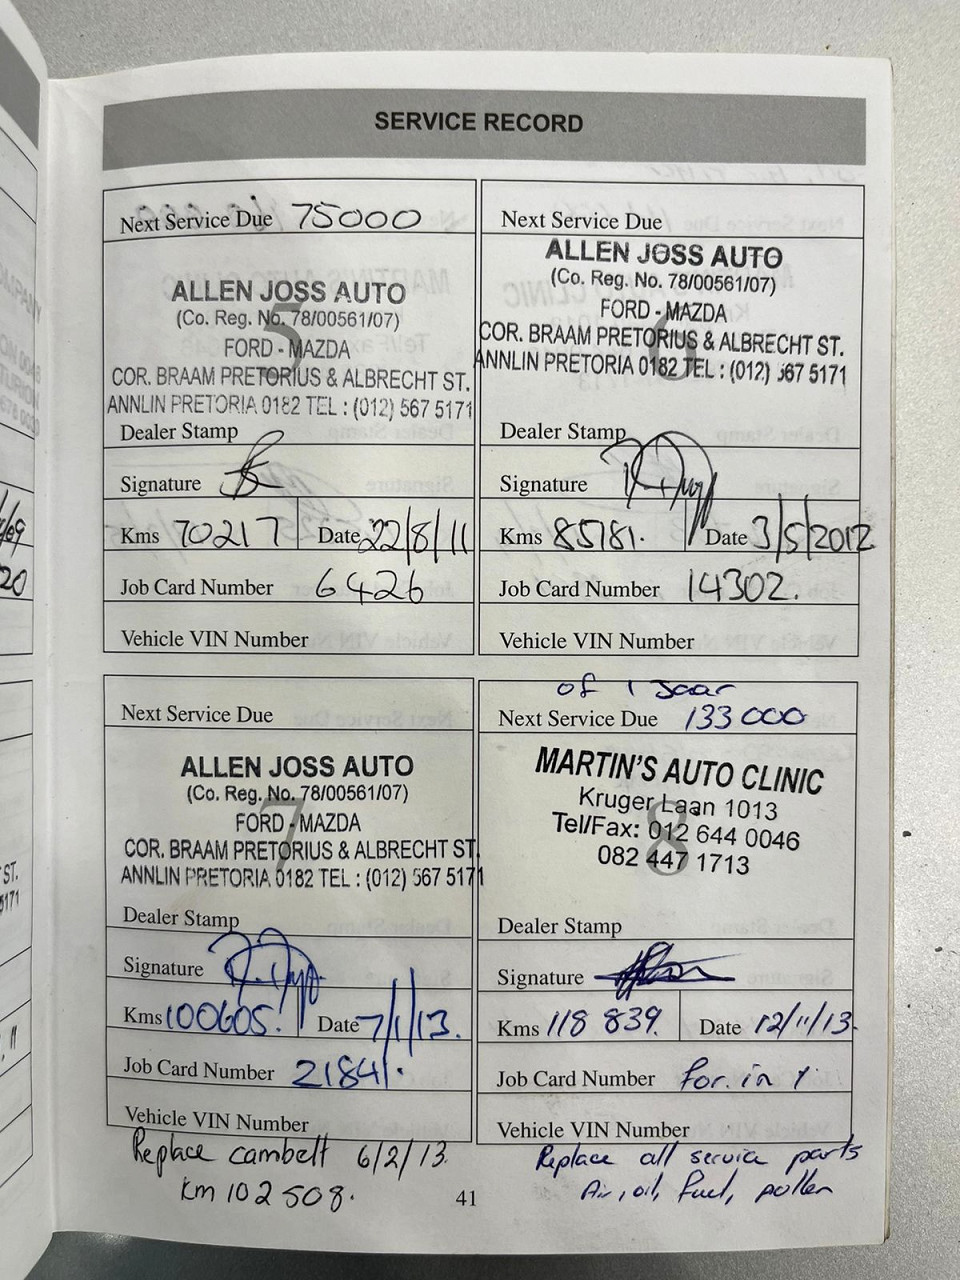 SERVICE RECORD
Next Service Due 75000
5
ALLEN JOSS AUTO
(Co. Reg. No. 78/00561/07)
FORD - MAZDA
COR. BRAAM PRETORIUS & ALBRECHT ST.
ANNLIN PRETORIA 0182 TEL : (012) 567 5171
Dealer Stamp
Signature
Kms 70217 Date 22/8/11
Job Card Number 6426
Vehicle VIN Number
Next Service Due
6
ALLEN JOSS AUTO
(Co. Reg. No. 78/00561/07)
FORD - MAZDA
COR. BRAAM PRETORIUS & ALBRECHT ST.
ANNLIN PRETORIA 0182 TEL : (012) 567 5171
Dealer Stamp
Signature
Kms 85781. Date 3/5/2012
Job Card Number 14302.
Vehicle VIN Number
Next Service Due
7
ALLEN JOSS AUTO
(Co. Reg. No. 78/00561/07)
FORD - MAZDA
COR. BRAAM PRETORIUS & ALBRECHT ST.
ANNLIN PRETORIA 0182 TEL : (012) 567 5171
Dealer Stamp
Signature
Kms 100605. Date 7/1/13.
Job Card Number 21841.
Vehicle VIN Number
Replace cambelt 6/2/13.
Km 102 508.
of 1 Jaar
Next Service Due 133 000
8
MARTIN'S AUTO CLINIC
Kruger Laan 1013
Tel/Fax: 012 644 0046
082 447 1713
Dealer Stamp
Signature
Kms 118 839. Date 12/11/13.
Job Card Number
Vehicle VIN Number
Replace all service parts
Air, oil, fuel, pollen
41